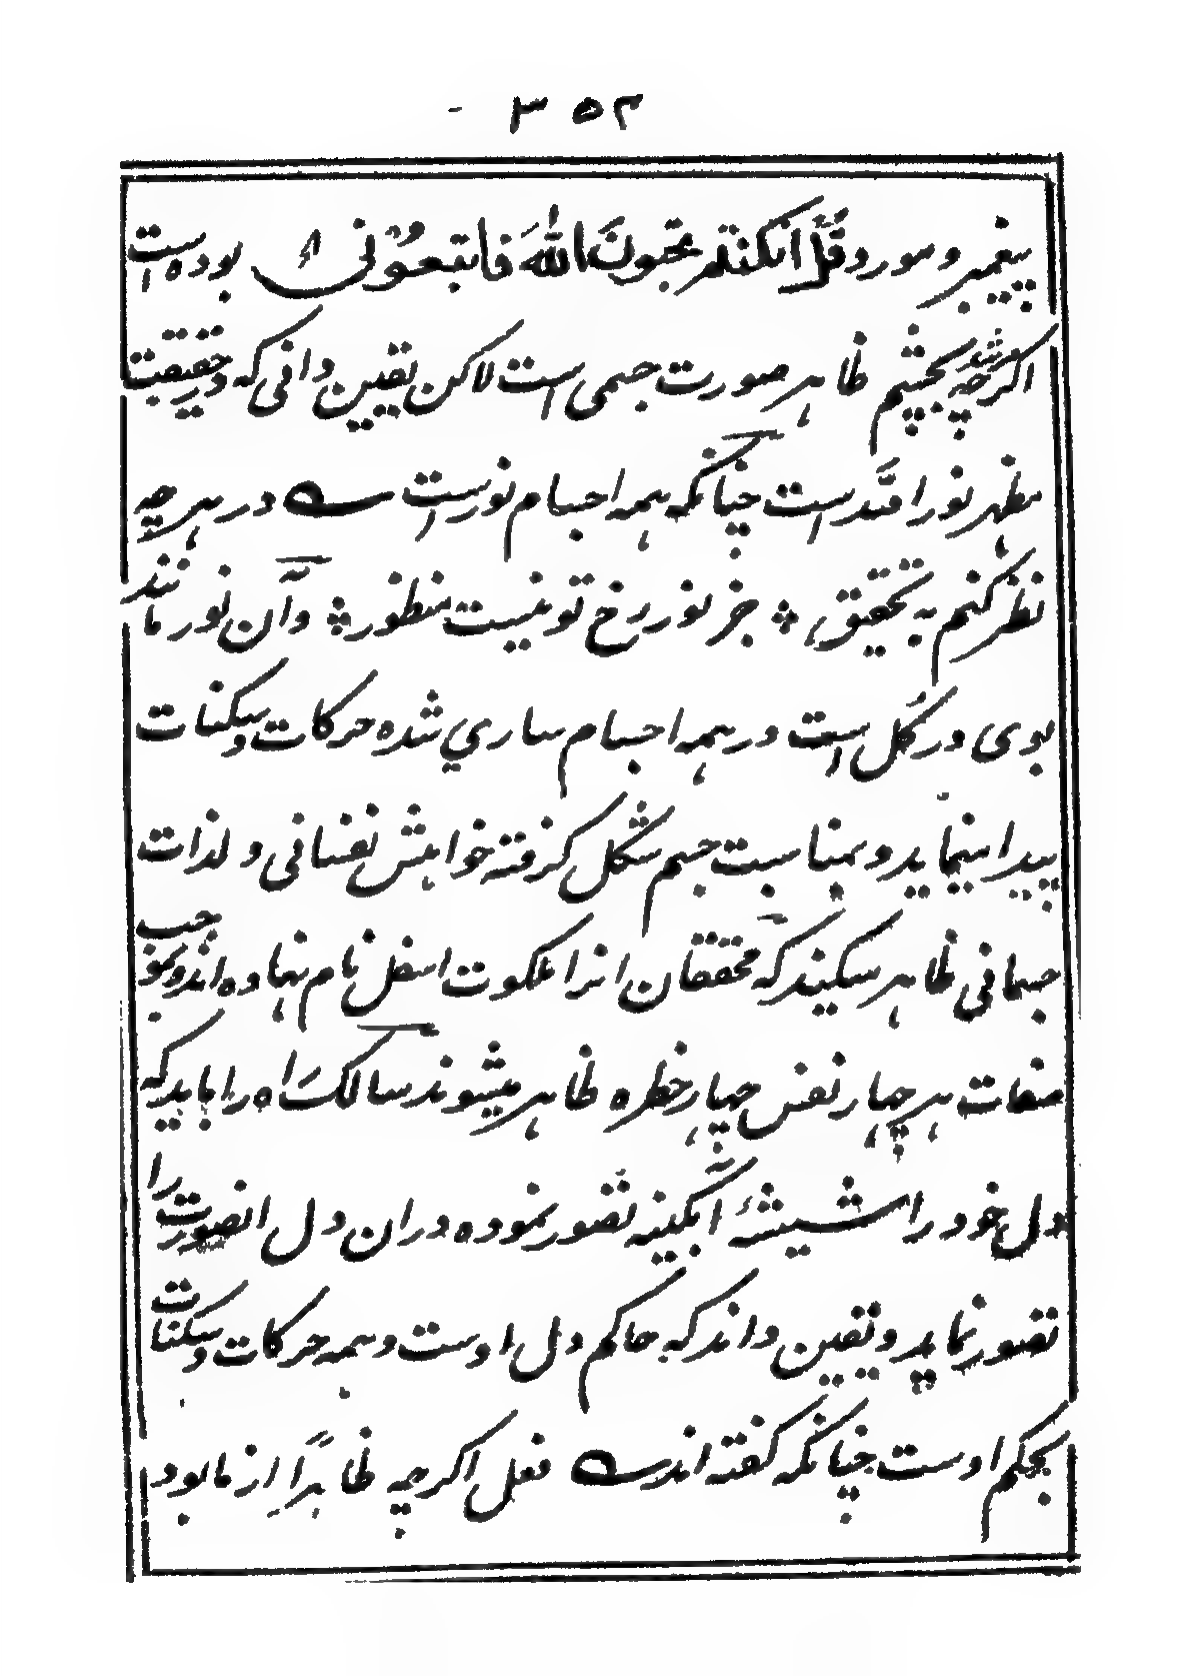 ۳۵۳
پیغمبر و مورد قُلْ انکنتم تحبون الله فاتبعونی بوده است
اگرچه بچشم ظاهر صورت جسمی است لاکن یقین دانی که در حقیقت
مظهر نور اقتدراست چنانکه همه اجسام نور است در هر چه
نظر کنم به تحقیق ، جز نور رخ تو نیست منظور و آن نور مانند
بوی در گل است در همه اجسام ساری شده حرکات و سکنات
پیدا مینماید و بمناسبت جسم شکل گرفته خواهش نفسانی و لذات
جسمانی ظاهر میکند که محققان انرا ملکوت اسفل نام نهاده اند و بموجب
صفات هر چهار نفس چهار خطره ظاهر میشوند سالک راه را باید که
دل خود را شیشهٔ آبگینه تصور نموده دران دل انصورت را
تصور نماید و یقین داند که حاکم دل اوست و همه حرکات و سکنات
بحکم اوست چنانکه گفته اند فعل اگرچه ظاهراً از ما بود